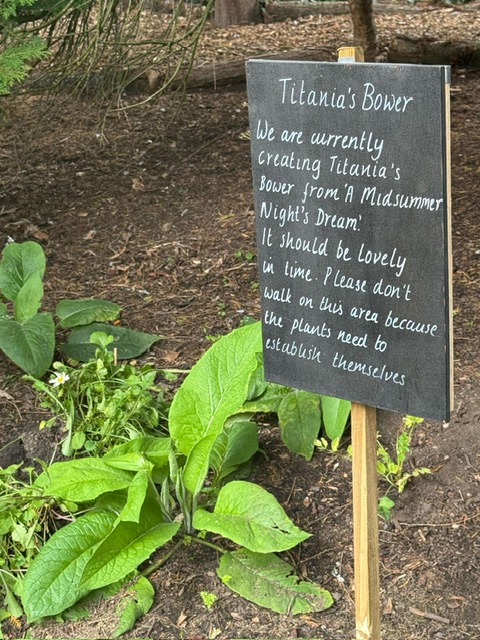 Titania's Bower
We are currently
creating Titania's
Bower from 'A Midsummer
Night's Dream.'
It should be lovely
in time. Please don't
walk on this area because
the plants need to
establish themselves